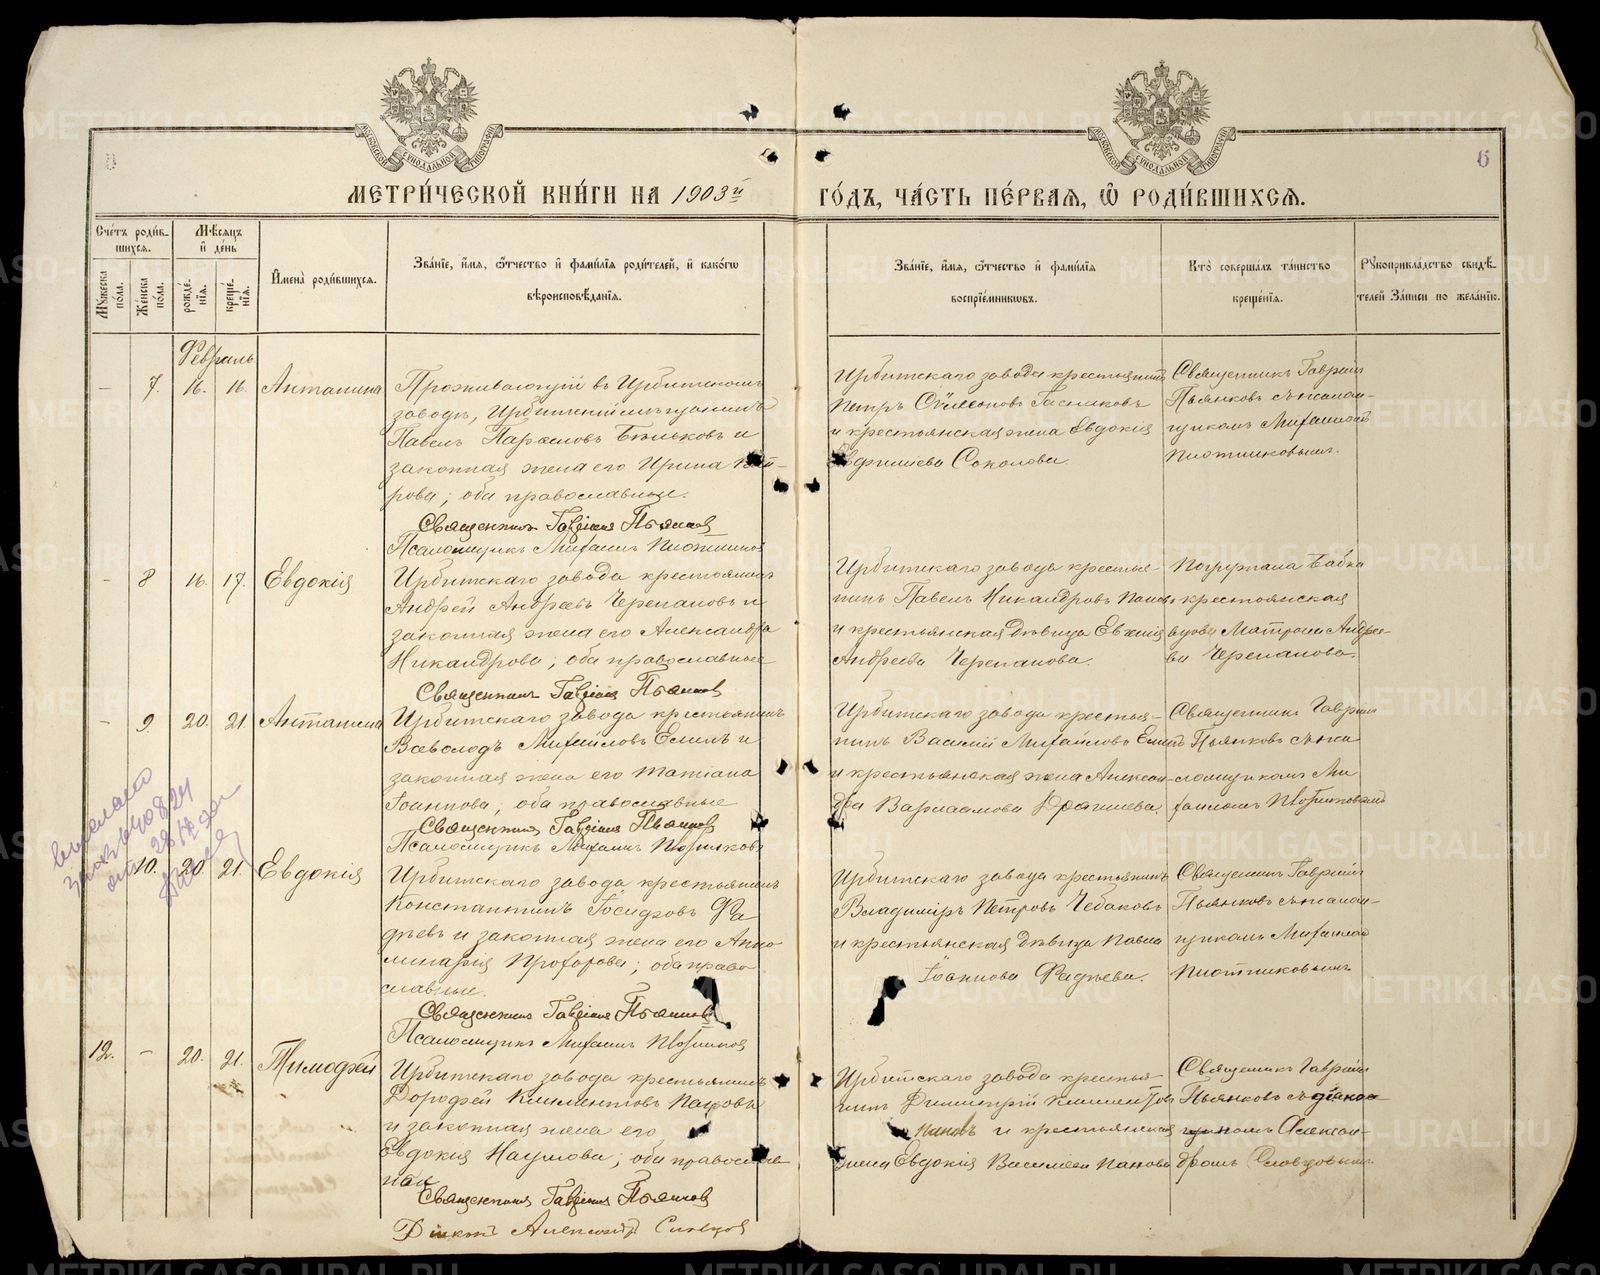 МЕТРИ́ЧЕСКОЙ КНИ́ГИ НА 1903й ГО́ДЪ, ЧА́СТЬ ПЕ́РВАЯ, Ѡ҆ РОДИ́ВШИХСЯ.
6
Сче́тъ роди́в-
шихся.
Мѣ́сяцъ
и҆ де́нь
Мꙋ́жеска
по́ла.
Же́нска
по́ла.
рожде́-
нїѧ.
креще́-
нїѧ.
И҆мена̀ роди́вшихся.
Зва́нїе, и҆́мя, ѻ҆́тчество и҆ фами́лїя роди́телей, и҆ како́гѡ
вѣроисповѣ́данїя.
Зва́нїе, и҆́мя, ѻ҆́тчество и҆ фами́лїя
воспрїе́мникѡвъ.
Кто̀ соверша́лъ та́инство
креще́нїя.
Рꙋкоприкла́дство свидѣ́-
телей за́писи по жела́нїю.
Февраль
– 7. 16. 16. Антонина
Проживающій въ Ирбитскомъ
заводѣ, Ирбитскій мѣщанинъ
Павелъ Бѣльковъ и
законная жена его Ирина Пет-
рова; оба православные.
Священникъ Гавріилъ Пьянков
Псаломщикъ Михаилъ Плотников
Ирбитскаго завода крестьянинъ
Петръ Сѵмеоновъ
и крестьянская жена Евдокія
Евфиміева Соколова.
Священникъ Гавріилъ
Пьянковъ съ псалом-
щикомъ Михаиломъ
Плотниковымъ.
– 8 16. 17. Евдокія
Ирбитскаго завода крестьянинъ
Андрей Андреевъ Черепановъ и
законная жена его Александра
Никандрова; оба православные
Священникъ Гавріилъ Пьянков
Ирбитскаго завода крестья-
нинъ Павелъ Никандровъ Панов
и крестьянская дѣвица Евгенія
Андреева Черепанова.
Погружала бабка
крестьянская
вдова Матрона Андрее-
ва Черепанова.
– 9. 20. 21. Антонина
Ирбитскаго завода крестьянинъ
Всеволодъ Михайловъ Елинъ и
законная жена его Татіана
Іоаннова, оба православные
Священникъ Гавріилъ Пьянков
Псаломщикъ Михаилъ Плотников
Ирбитскаго завода крестья-
нинъ Василій Михайловъ Елинъ
и крестьянская жена Алексан-
дра Варлаамова
Священникъ Гавріил
Пьянковъ съ пса
ломщикомъ Ми
хаиломъ Плотниковымъ
Выслано
10. 20. 21. Евдокія
Ирбитскаго завода крестьянинъ
Константинъ Іосифовъ Фа-
дѣевъ и законная жена его Апол-
линарія Прохорова; оба право
славные.
Священникъ Гавріилъ Пьянков
Псаломщикъ Михаилъ Плотников
Ирбитскаго завода крестьянинъ
Владиміръ Петровъ Чебаковъ
и крестьянская дѣвица Павла
Іоаннова Фадѣева.
Священникъ Гавріилъ
Пьянковъ съ псалом-
щикомъ Михаиломъ
Плотниковымъ
12. – 20. 21. Тимофей
Ирбитскаго завода крестьянинъ
Дорофей Климентовъ Пановъ
и законная жена его
Евдокія Наумова; оба православ-
ные
Священникъ Гавріилъ Пьянков
Діаконъ Александръ Словцов
Ирбитскаго завода крестья-
нинъ Димитрій Климентов
Пановъ и крестьянская
жена Евдокія Василіева Панова
Священникъ Гавріилъ
Пьянковъ съ діако-
номъ Алексан-
дромъ Словцовымъ
METRIKI.GASO-URAL.RU